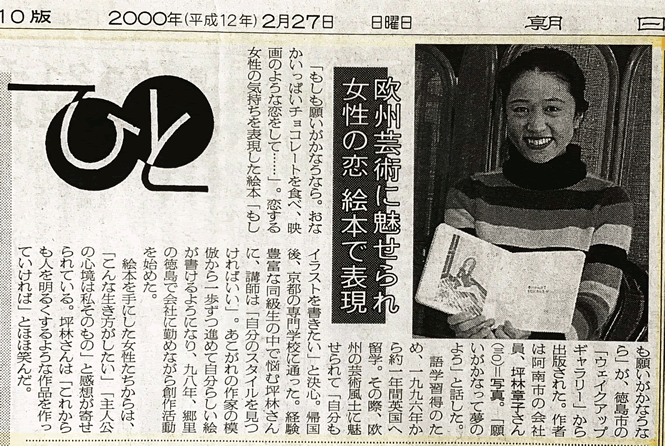 10版 2000年(平成12年)2月27日 日曜日 朝日
ひと
欧州芸術に魅せられ
女性の恋 絵本で表現
「もしも願いがかなうなら。おな
かいっぱいチョコレートを食べ、映
画のような恋をして……」。恋する
女性の気持ちを表現した絵本「もし
も願いがかなうな
ら」が、徳島市の
「ウェイクアップ
ギャラリー」から
出版された。作者
は阿南市の会社
員、坪林章子さん
(三〇)=写真。「願
いがかなって夢の
よう」と話した。
語学習得のた
め、一九九六年か
ら約一年間英国へ
留学。その際、欧
州の芸術風土に魅
せられて「自分も
イラストを書きたい」と決心。帰国
後、京都の専門学校に通った。経験
豊富な同級生の中で悩む坪林さん
に、講師は「自分のスタイルを見つ
ければいい」。あこがれの作家の模
倣から一歩ずつ進めて自分らしい絵
が書けるようになり、九八年、郷里
の徳島で会社に勤めながら創作活動
を始めた。
絵本を手にした女性たちからは、
「こんな生き方がしたい」「主人公
の心境は私そのもの」と感想が寄せ
られている。坪林さんは「これから
も人を明るくするような作品を作っ
ていければ」とほほ笑んだ。